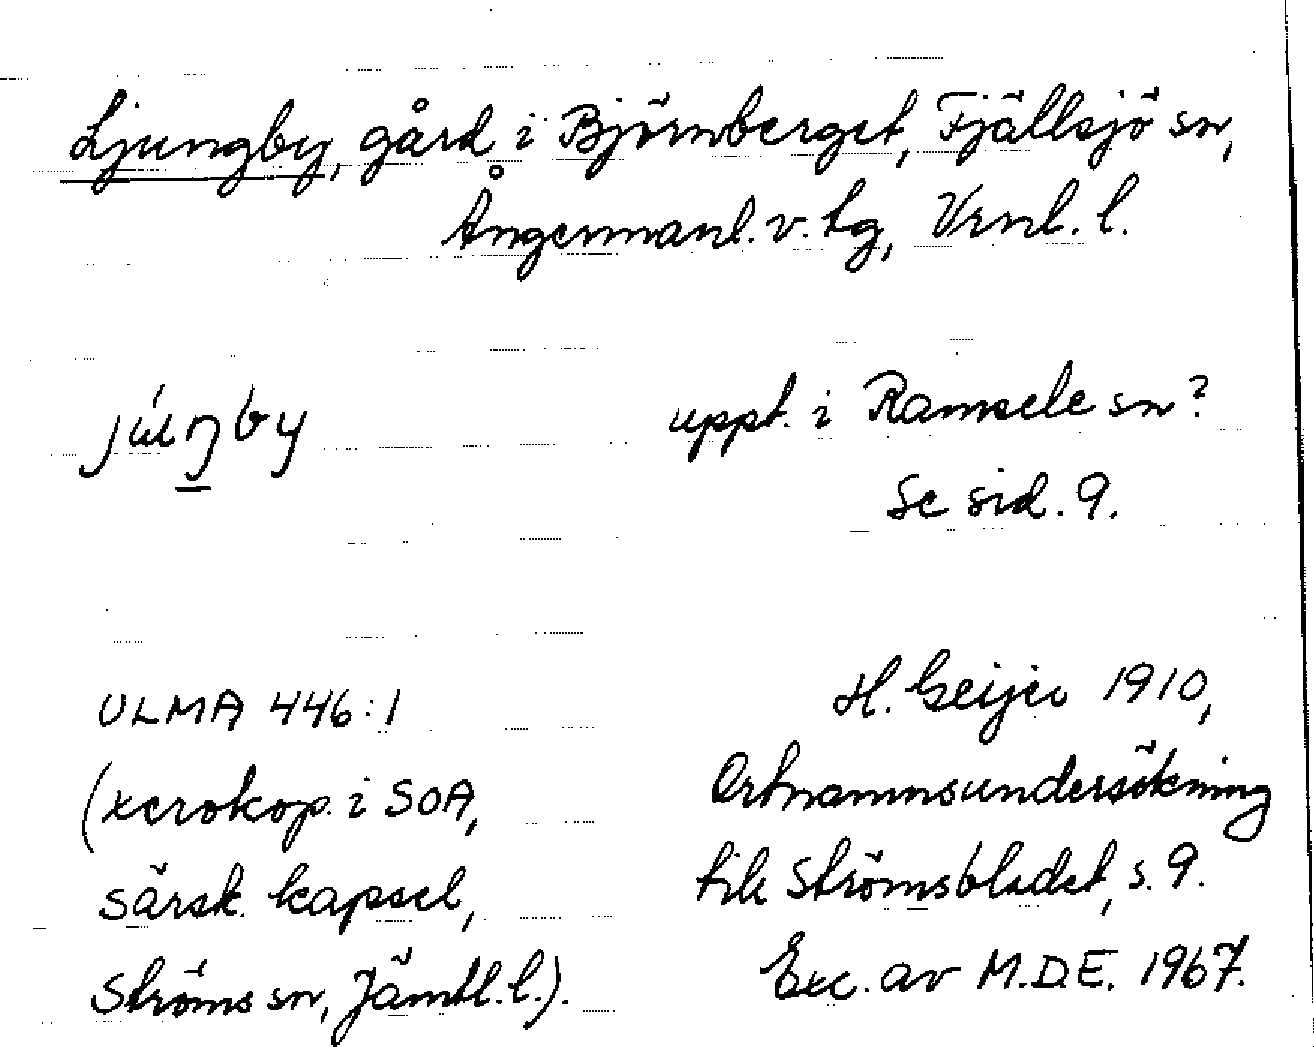 Ljungby, gård i Björnberget, Fjällsjö sn,
Ångermanl. v. tg, Vrnl. l.
júŋby
uppt. i Ramsele sn?
Se sid. 9.
ULMA 446:1
(xerokop. i SOA,
särsk. kapsel,
Ströms sn, Jämtl. l.).
H. Geijer 1910,
Ortnamnsundersökning
till Strömsbladet, s. 9.
Exc. av M.D.E. 1967.